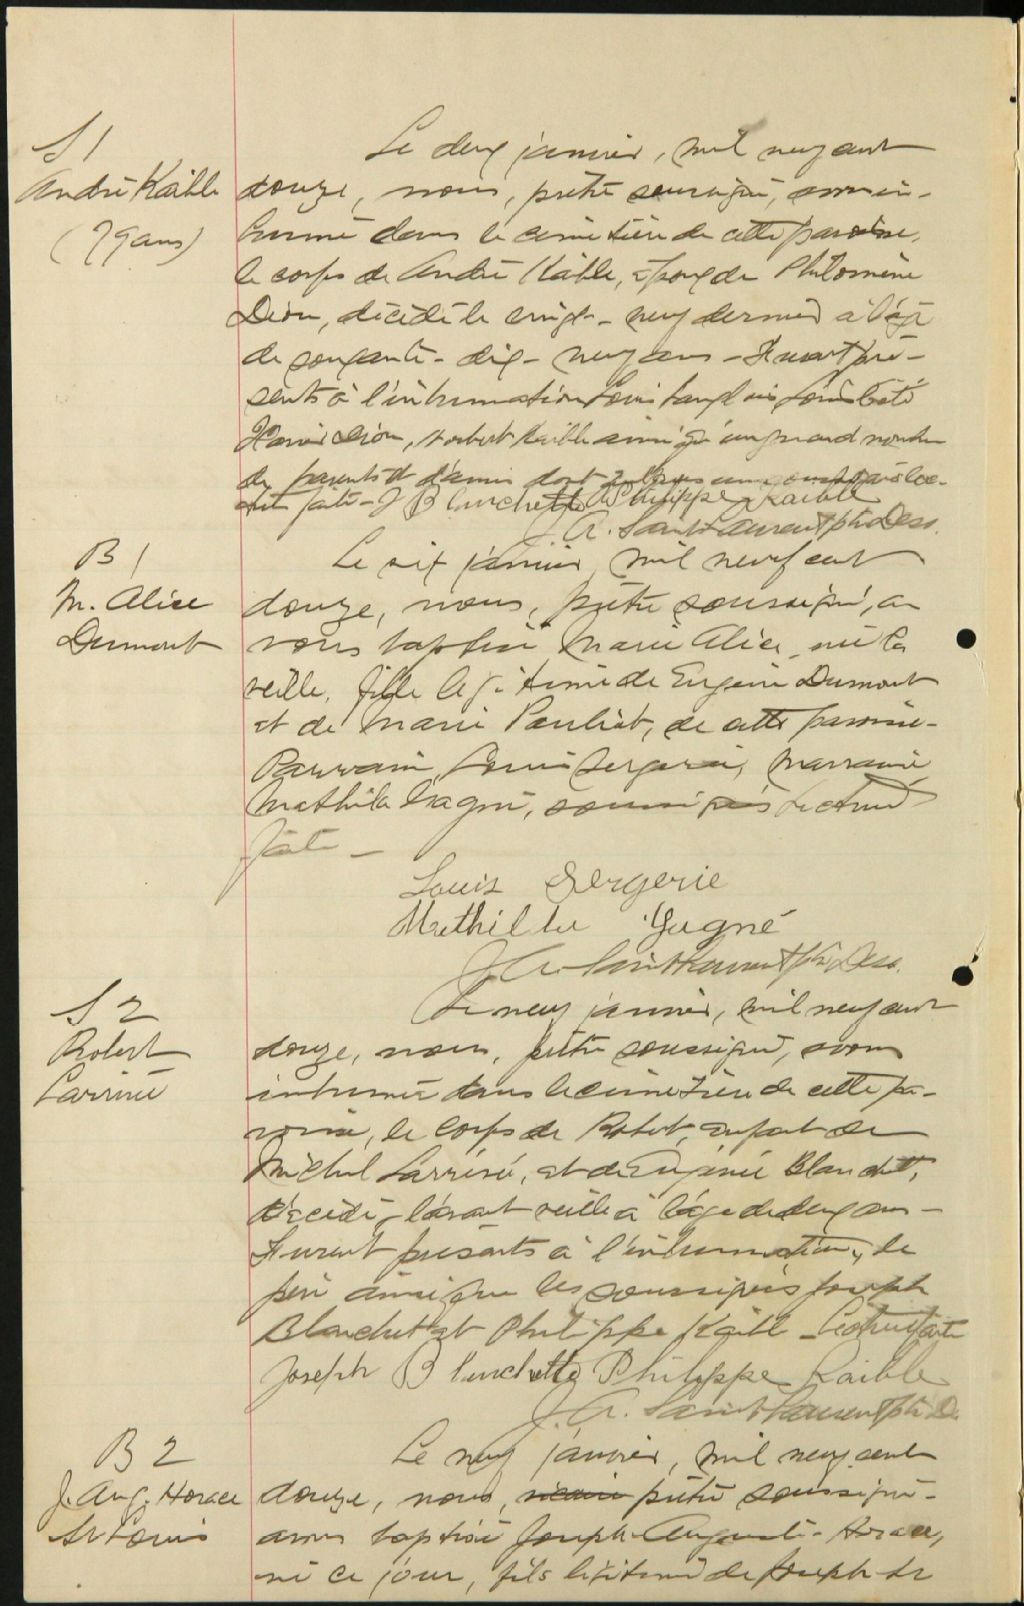 S 1
André Kaible
(79 ans)
Le deux janvier, mil neuf cent
douze, nous, prêtre soussigné, avons in-
humé dans le cimetière de cette paroisse,
le corps de André Kaible, époux de Philomène
Dion, décédé le vingt-neuf dernier à l'âge
de soixante-dix-neuf ans - Furent pré-
sents à l'inhumation Louis Langlois Louis
Dion, Norbert Kaible ainsi qu'un grand nombre
de parents et d'amis dont
fait - J Blanchette Philippe Kaible
J. A. Saint-Laurent ptre Dess.
B 1
M. Alice
Dumont
Le six janvier, mil neuf cent
douze, nous, prêtre soussigné, a-
vons baptisé Marie Alice, née la
veille, fille légitime de Eugène Dumont
et de Marie Pouliot, de cette paroisse -
Parrain, Louis Sergerie, Marraine
Mathilda Gagné, soussignés Lecture
faite -
Louis Sergerie
Mathilda Gagné
J. A. Saint-Laurent ptre Dess.
S 2
Robert
Larrivée
Le neuf janvier, mil neuf cent
douze, nous, prêtre soussigné, avons
inhumé dans le cimetière de cette pa-
roisse, le corps de Robert, enfant de
Michel Larrivée, et de Eugénie Blanchette,
décédé, l'avant veille à l'âge de deux ans -
Furent présents à l'inhumation, le
père ainsi que les soussignés Joseph
Blanchet et Philippe Kaible - Lecture faite
Joseph Blanchette Philippe Kaible
J. A. Saint-Laurent ptre D.
B 2
J. Aug. Horace
St Louis
Le neuf janvier, mil neuf cent
douze, nous, vicaire prêtre soussigné -
avons baptisé Joseph-Auguste-Horace,
né ce jour, fils légitime de Joseph St